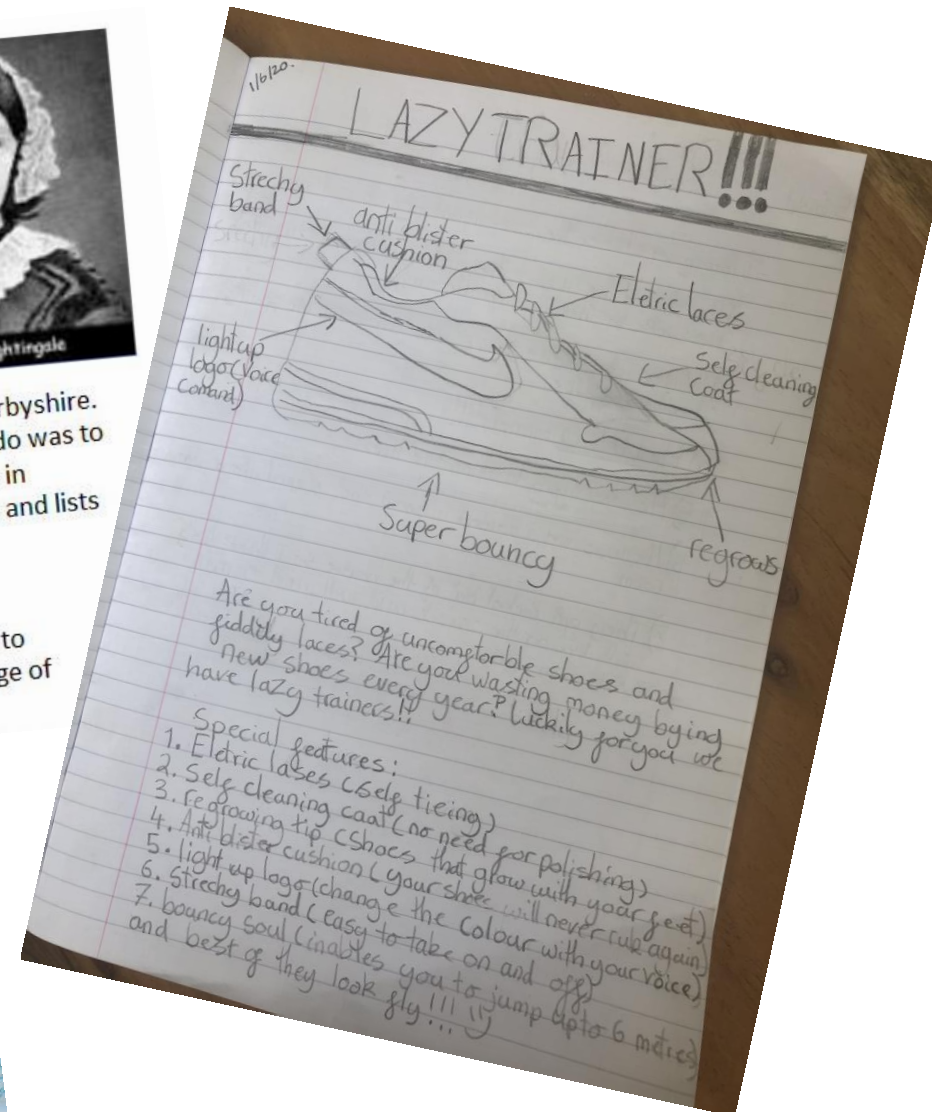 ghtingale
rbyshire.
do was to
in
and lists
to
ge of
1/6/20.
LAZY TRAINER!!!
Strechy
band
anti blister
cushion
Eletric laces
light up
logo (voice
comand)
Self cleaning
coat
Super bouncy
regrows
Are you tired of uncomftorble shoes and
fiddily laces? Are you wasting money bying
new shoes every year? Luckily for you we
have lazy trainers!!
Special features:
1. Eletric lases (self tieing)
2. Self cleaning coat (no need for polishing)
3. regrowing tip (shoes that grow with your feet)
4. Anti blister cushion (your shoes will never rub again)
5. light up logo (change the colour with your voice)
6. Strechy band (easy to take on and off)
7. bouncy soul (inables you to jump upto 6 metres)
and best of they look fly!!!